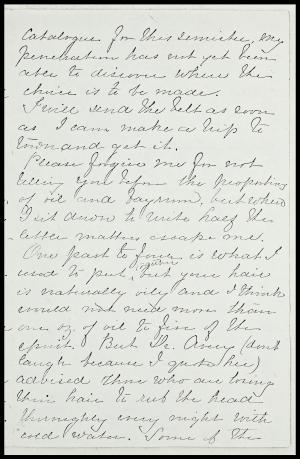 catalogue for this semester, my
penetration has not yet been
able to discover where the
choice is to be made.
I will send the belt as soon
as I can make a trip to
town and get it.
Please forgive me for not
telling you before the proportions
of oil and bayrum, but when
I sit down to write half the
letter matters escape me.
One part to four is what I
used to put, but your hair
is naturally oily and I think
would not need more than
one oz. of oil to five of the
spirit. But Dr. Avery (don't
laugh because I quote her)
advised those who are losing
their hair to rub the head
thoroughly every night with
cold water. Some of the